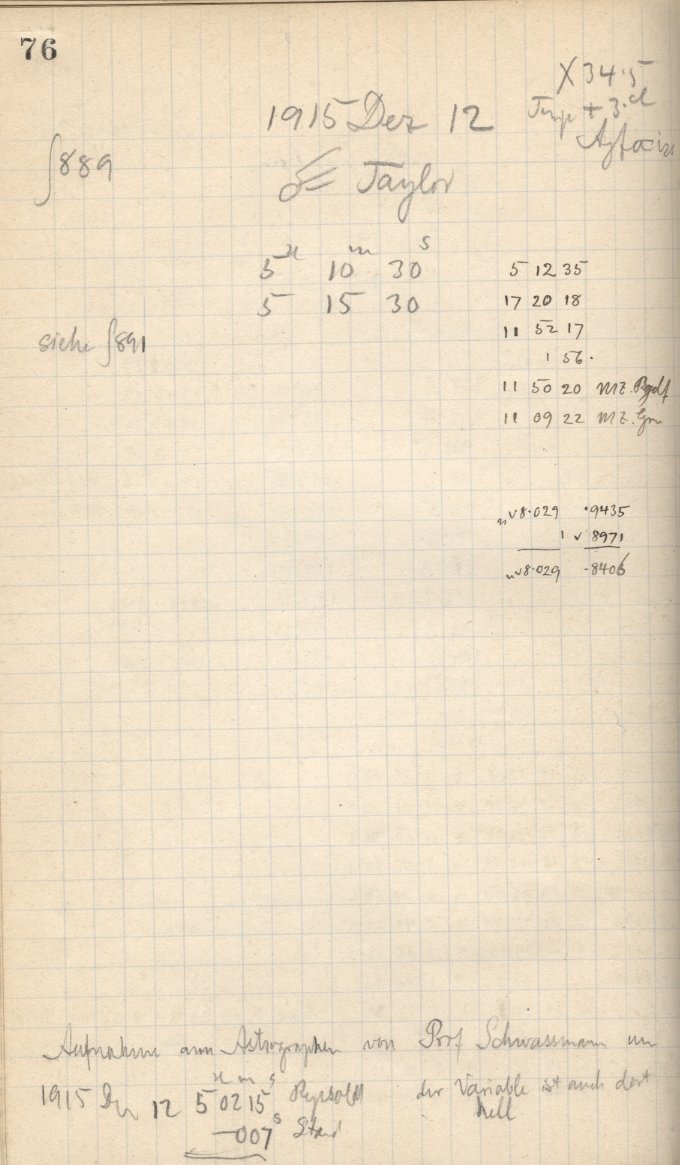 76
X 34.5
1915 Dez 12
Temp + 3.
∫889
Taylor
5 h 10 m 30 s
5 15 30
5 12 35
17 20 18
siehe ∫891
11 52 17
1 56.
11 50 20 MZ. Bgdf
11 09 22 MZ. Gr
n v8.029 .9435
1 v 8971
n v8.029 .8406
Aufnahme am Astrographen von Prof Schwassmann um
1915 Dez 12 5 h 02 m 15 s Repsold der Variable ist auch dort
hell
—007 s Stand